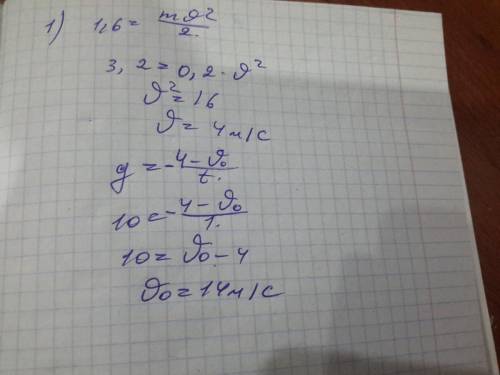 1) 1,6 = mϑ²/2.
3,2 = 0,2 · ϑ²
ϑ² = 16
ϑ = 4 м/с
g = -4 - ϑ₀/t.
10 = -4 - ϑ₀/1.
10 = ϑ₀ - 4
ϑ₀ = 14 м/с